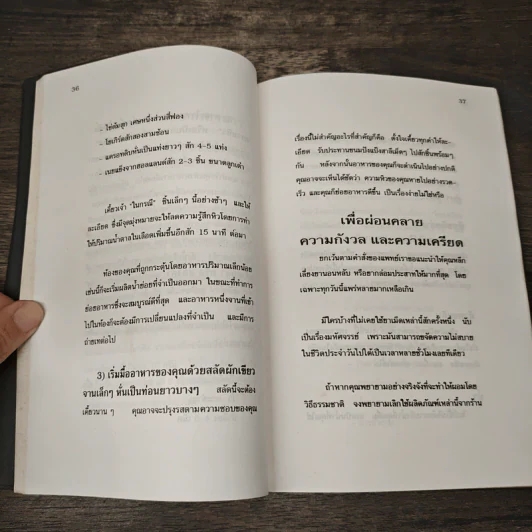 36
– ไข่ต้มสุก เศษหนึ่งส่วนสี่ฟอง
– โยเกิร์ตสักสองสามช้อน
– แครอทหั่นบางเป็นแท่งยาวๆ สัก 4-5 แท่ง
– เนยแข็งจากฮอลแลนด์สัก 2-3 ชิ้น ขนาดลูกเต๋า
เคี้ยวเจ้า "ในกรณี" ชิ้นเล็กๆ นี้อย่างช้าๆ และให้
ละเอียด ซึ่งมีจุดมุ่งหมายจะให้ลดความรู้สึกหิวโดยการทำ
ให้ปริมาณน้ำตาลในเลือดเพิ่มขึ้นอีกสัก 15 นาที ต่อมา
ท้องของคุณที่ถูกกระตุ้นโดยอาหารปริมาณเล็กน้อย
เช่นนี้ก็จะเริ่มผลิตน้ำย่อยที่จำเป็นออกมา ในขณะที่การ
ย่อยอาหารซึ่งจะสมบูรณ์ดีที่สุด และอาหารหนึ่งจานที่เข้า
ไปในท้องก็จะต้องมีการเปลี่ยนแปลงที่จำเป็น และมีการ
ถ่ายเทต่อไป
3) เริ่มมื้ออาหารของคุณด้วยสลัดผักเขียว
จานเล็กๆ หั่นเป็นท่อนยาวบางๆ สลัดนี้จะต้อง
เคี้ยวนาน ๆ คุณอาจจะปรุงรสตามความชอบของคุณ
37
เรื่องนี้ไม่สำคัญอะไรที่สำคัญก็คือ ตั้งใจเคี้ยวทุกคำให้ละ-
เอียด รับประทานขนมปังแป้งสาลีเม็ดๆ ไปสักชิ้นพร้อมๆ
กัน หลังจากนั้นอาหารของคุณก็จะดำเนินไปอย่างปกติ
คุณอาจจะเห็นได้ชัดว่า ความหิวของคุณหายไปอย่างรวด-
เร็ว และคุณก็ย่อยอาหารดีขึ้น เป็นเรื่องง่ายไม่ใช่หรือ
เพื่อผ่อนคลาย
ความกังวล และความเครียด
ยกเว้นตามคำสั่งของแพทย์เราขอแนะนำให้คุณหลีก
เลี่ยงยานอนหลับ หรือยากล่อมประสาทให้มากที่สุด โดย
เฉพาะทุกวันนี้แพร่หลายมากเหลือเกิน
มีใครบ้างที่ไม่เคยใช้ยาเม็ดเหล่านี้สักครั้งหนึ่ง นับ
เป็นเรื่องมหัศจรรย์ เพราะมันสามารถขจัดความไม่สบาย
ในชีวิตประจำวันไปได้เป็นเวลาหลายชั่วโมงเลยทีเดียว
ถ้าหากคุณพยายามอย่างจริงจังที่จะทำให้ผอมโดย
วิธีธรรมชาติ จงพยายามเลิกใช้ผลิตภัณฑ์เหล่านี้จากร้าน